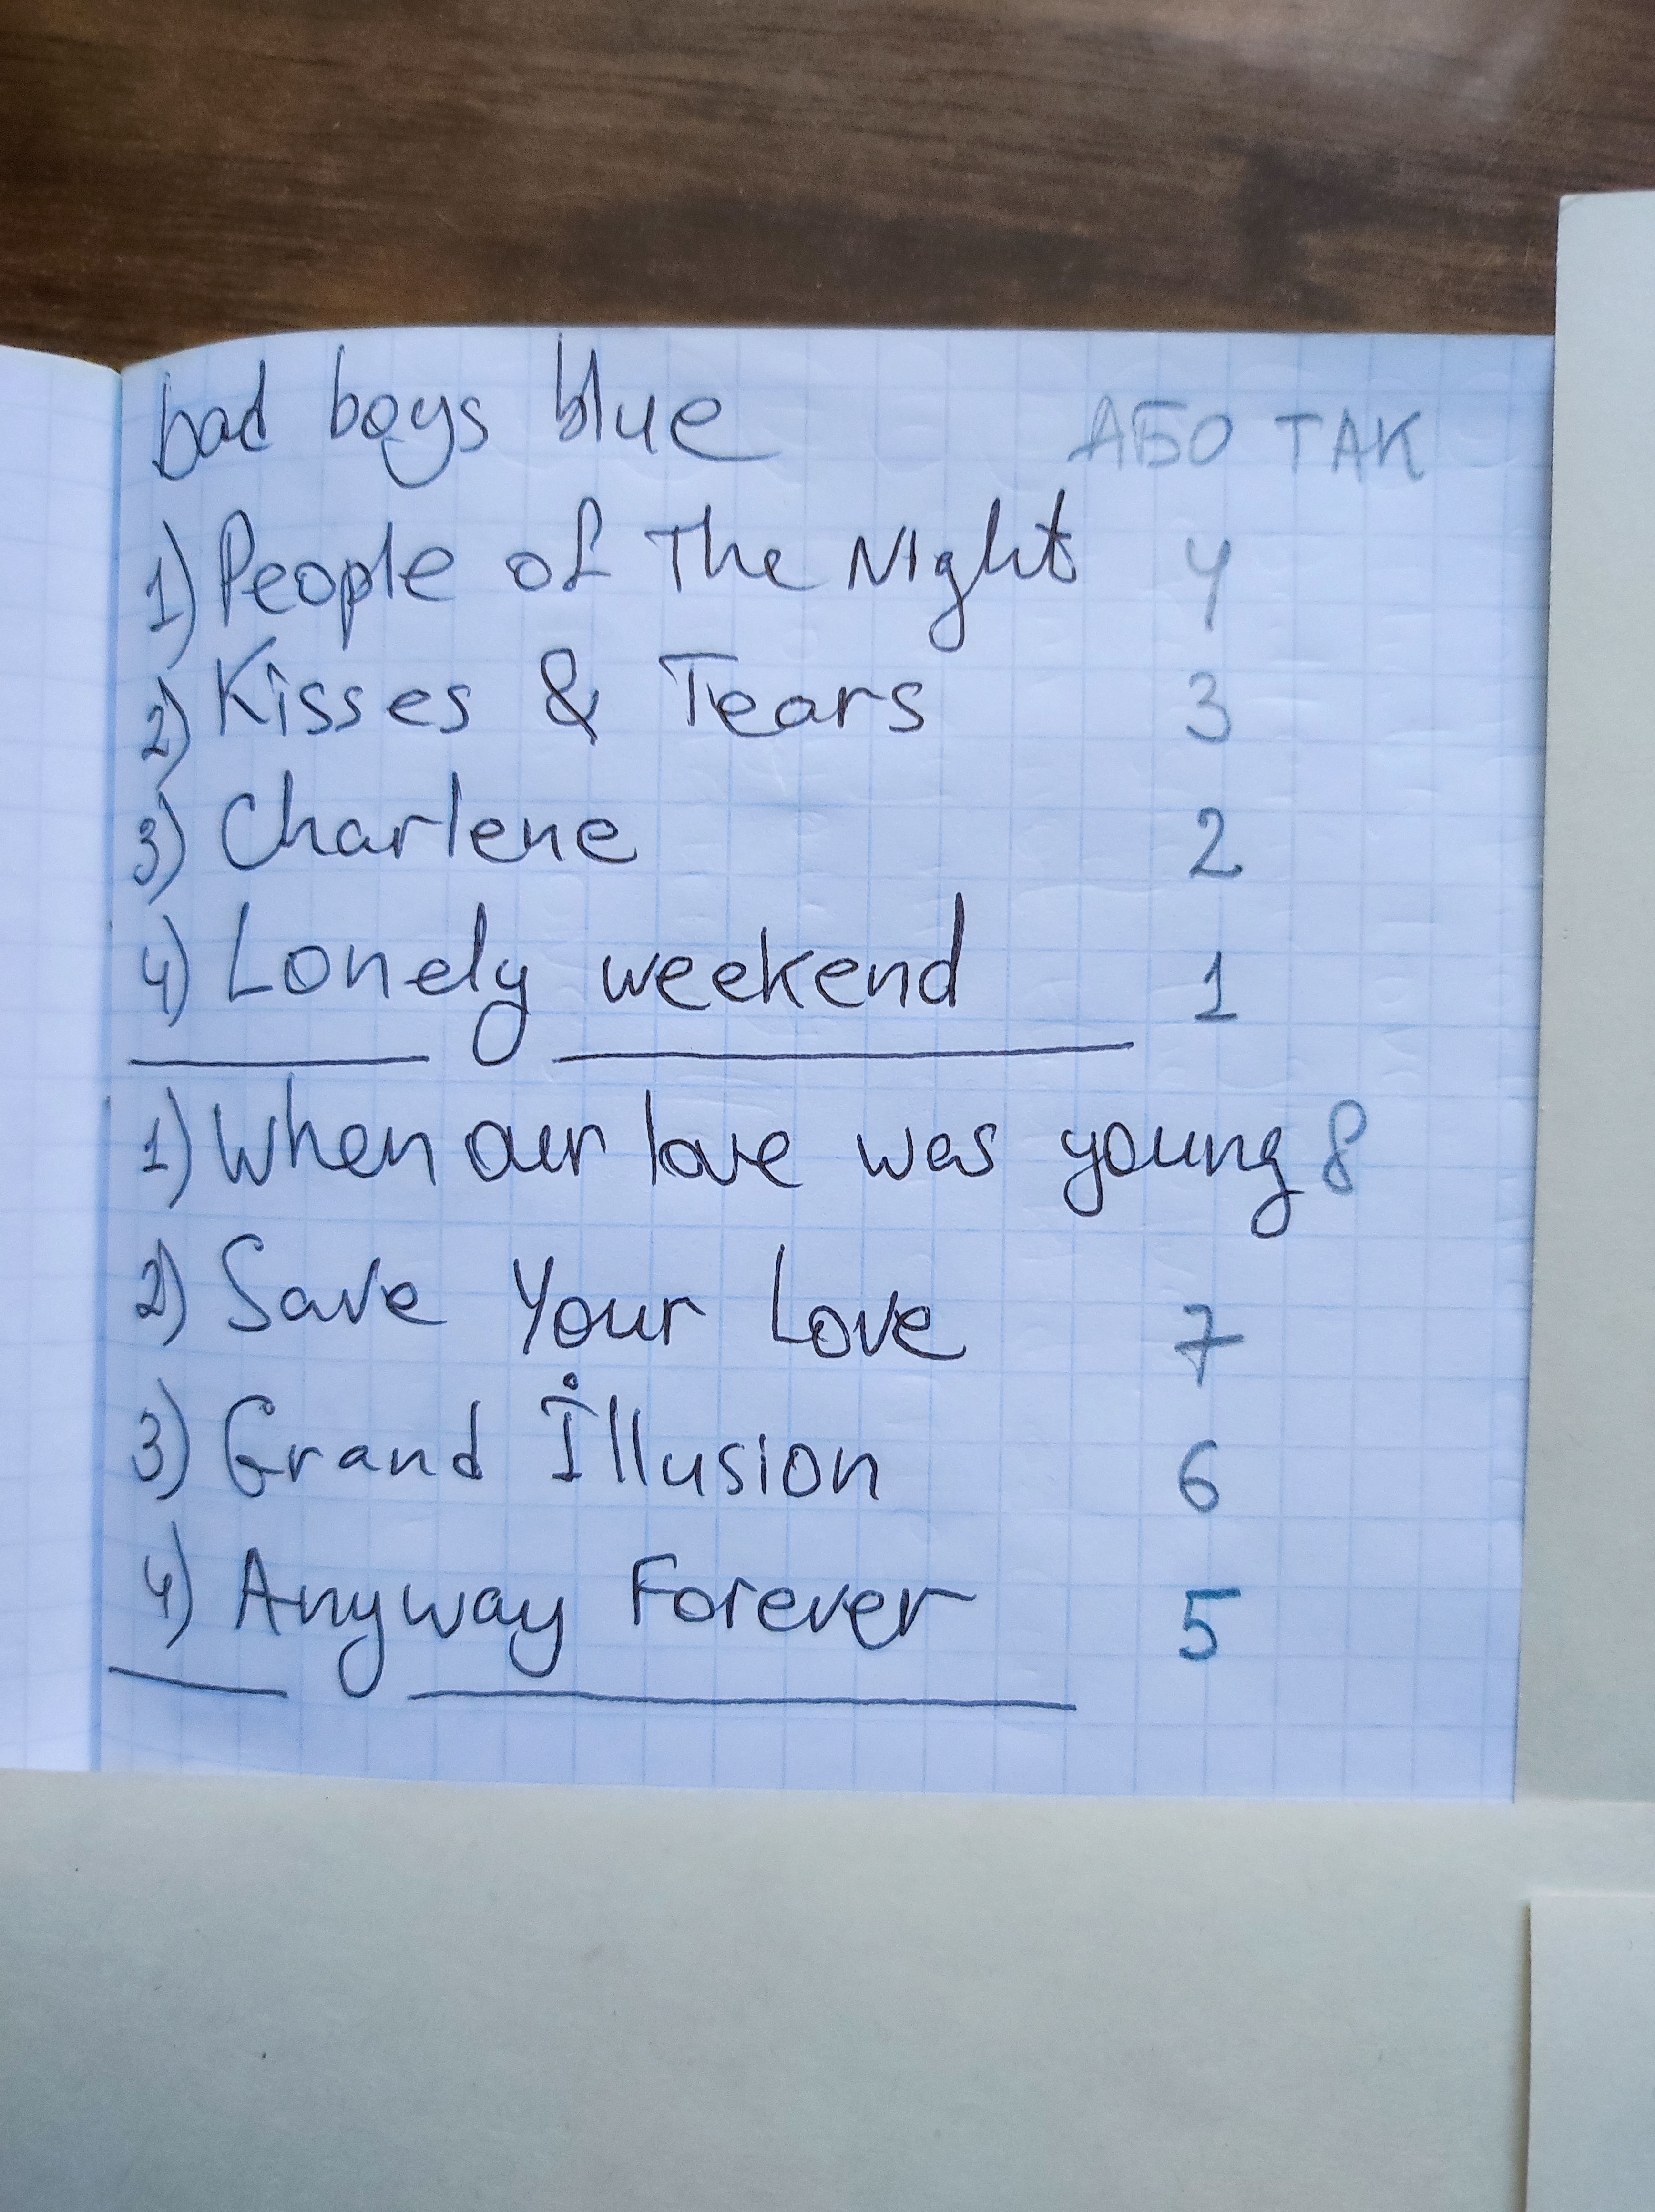 bad boys blue АБО ТАК
1) People of The Night 4
2) Kisses & Tears 3
3) Charlene 2
4) Lonely weekend 1
1) When our love was young 8
2) Save Your Love 7
3) Grand Illusion 6
4) Anyway Forever 5